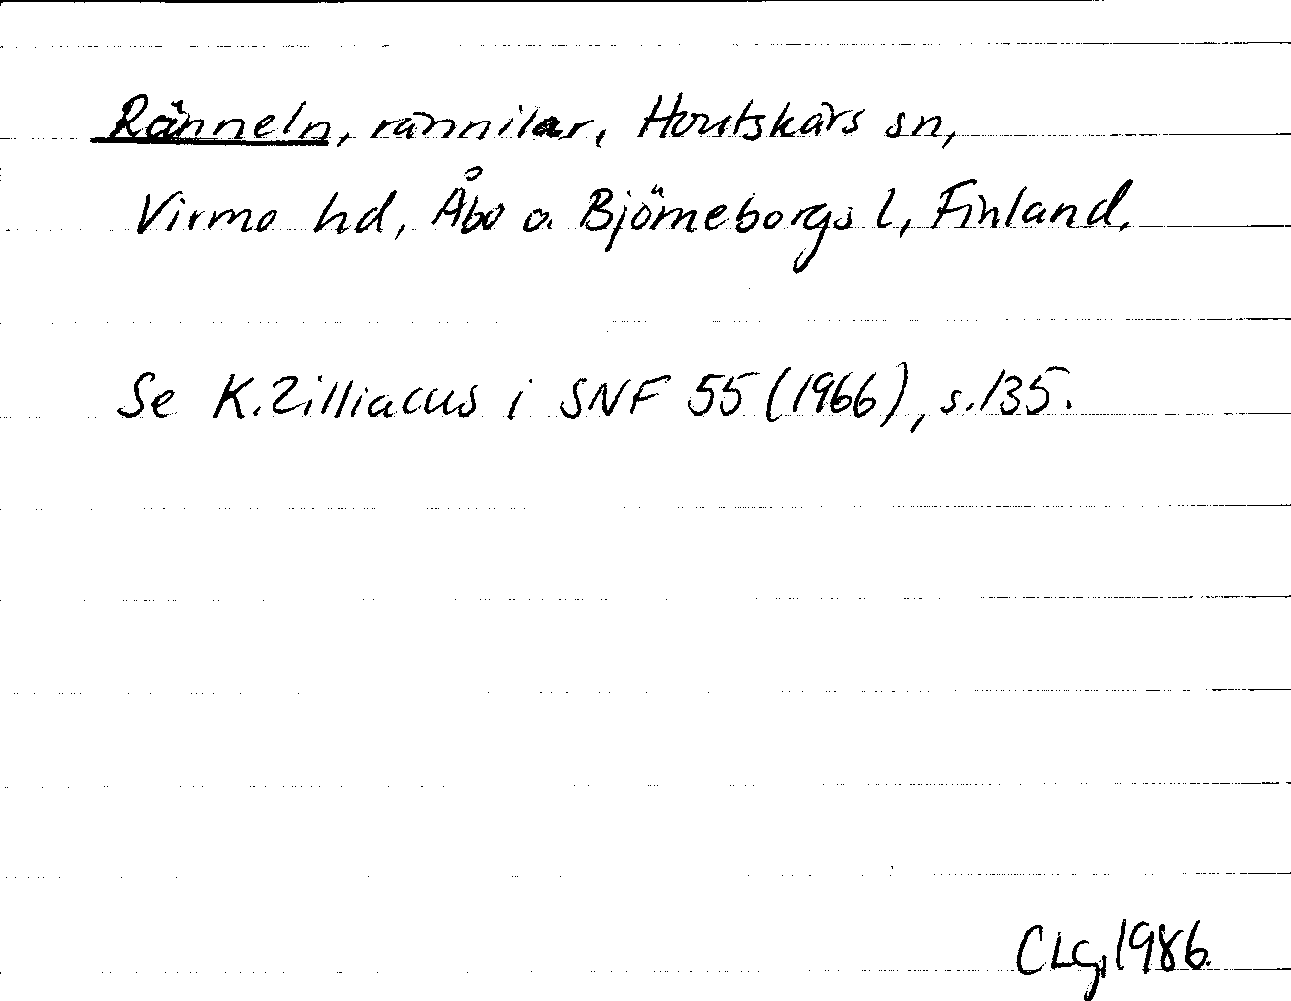 Ränneln, rännilar, Houtskärs sn,
Virmo hd, Åbo o. Björneborgs l, Finland.
Se K. Zilliacus i SNF 55 (1966), s. 135.
CLG, 1986.